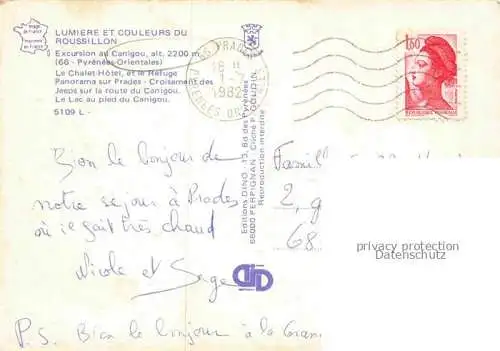 image de France
imprimé en France
LUMIERE ET COULEURS DU
ROUSSILLON
Excursion au Canigou, alt. 2200 m.
(66 - Pyrénées-Orientales)
Le Chalet-Hôtel, et le Refuge
Panorama sur Prades - Croisement des
Jeeps sur la route du Canigou.
Le Lac au pied du Canigou.
5109 L -
66 PRADES
18 H
1982
PYRENEES OR
1,60
REPUBLIQUE FRANÇAISE
Editions DINO - 13, Bd des Pyrénées
66000 PERPIGNAN - Cliché P. GOUDIN.
Reproduction interdite
Bien le bonjour de
notre séjour à Prades
où il fait très chaud
Nicole et Serge
P.S. Bien le bonjour à la Gram
Famill
2, g
68
privacy protection
Datenschutz